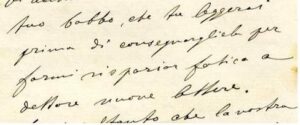 tuo babbo, che tu leggerai
prima di consegnargliela per
farmi risparmiar fatica a
dettare nuove lettere.
tanto che la vostra